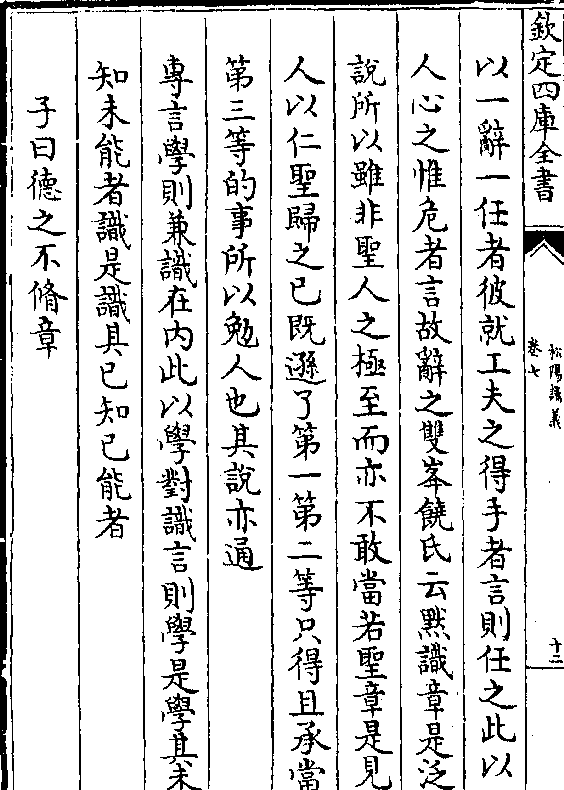 欽定四庫全書
松陽講義
卷七
十二
以一辭一任者彼就工夫之得手者言則任之此以
人心之惟危者言故辭之雙峯饒氏云黙識章是泛
說所以雖非聖人之極至而亦不敢當若聖章是見
人以仁聖歸之已既遜了第一第二等只得且承當
第三等的事所以勉人也其說亦通
專言學則兼識在内此以學對識言則學是學其未
知未能者識是識其已知已能者
子曰德之不脩章